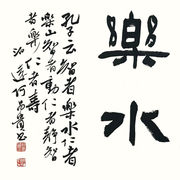 樂水
孔子云智者樂水仁者
樂山智者動仁者靜智
者樂仁者壽
何昌貴